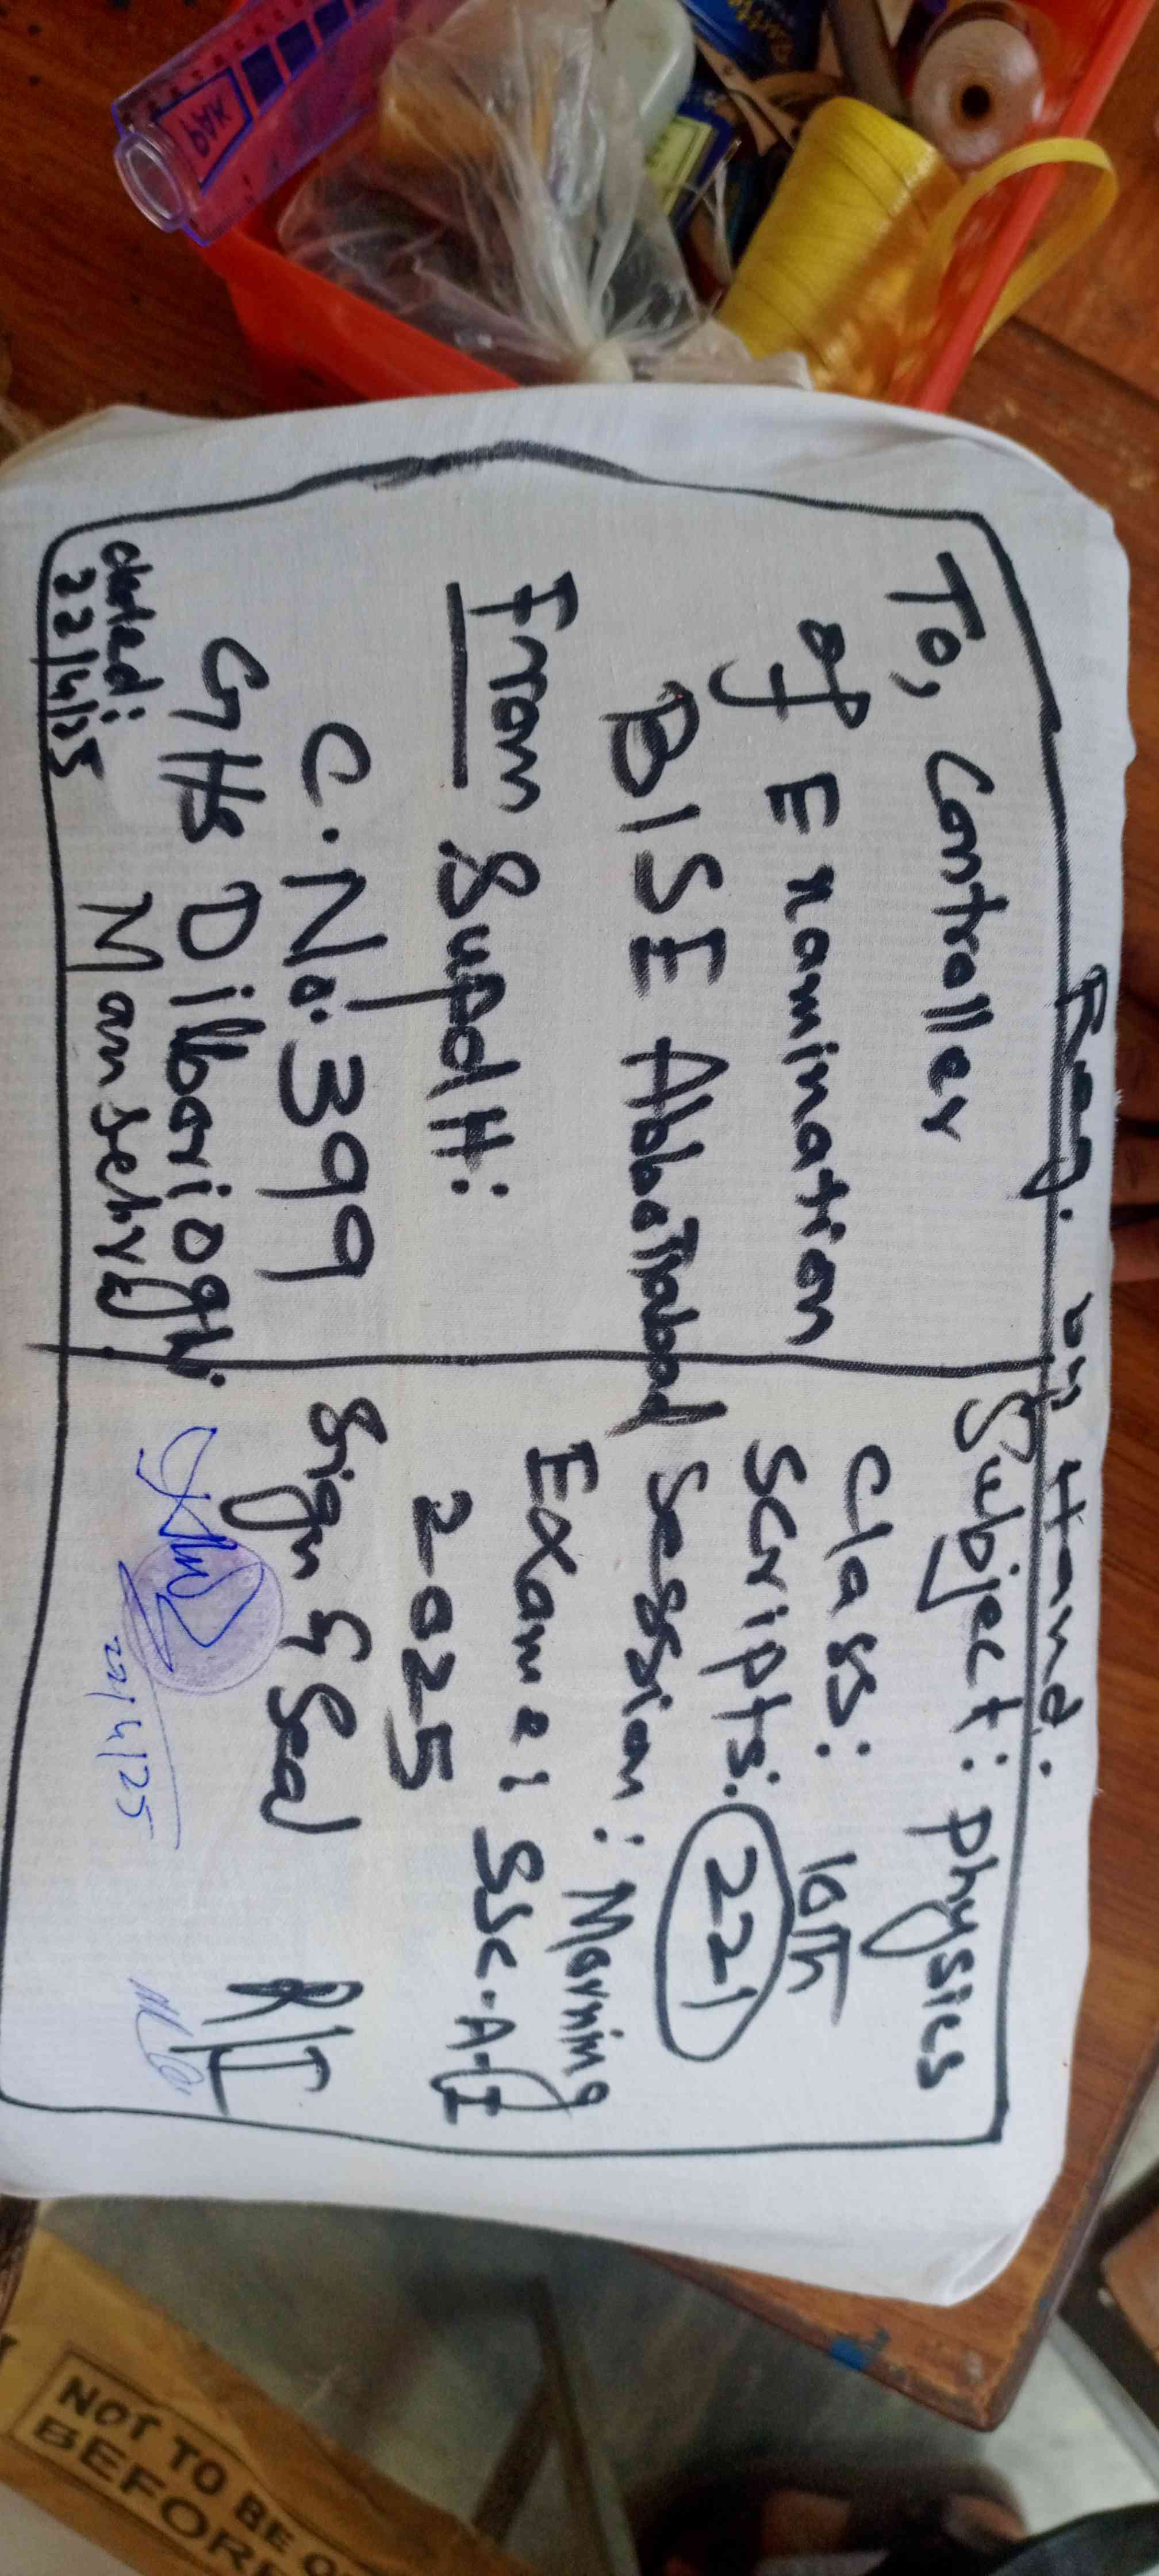 Reg. by Hand.
To, Controller
of Examination
BISE AbboTTabad
From Supdtt:
C.No. 399
GHS Dilbori oghi
Mansehra
dated:
22/4/25
Subject: Physics
Class: 10Th
Scripts: 221
Session: Morning
Exam: SSC-A-I
2025
Sign & Seal
22/4/25
R/I
NOT TO BE O
BEFOR